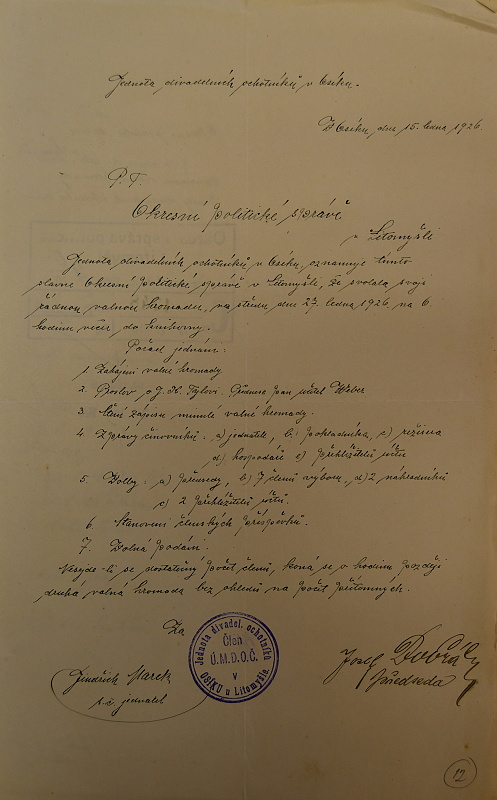 Jednota divadelních ochotníků v Osíku.
V Osíku, dne 15. ledna 1926.
P. T.
Okresní politické správě
v Litomyšli
Jednota divadelních ochotníků v Osíku, oznamuje tímto
slavné Okresní politické správě v Litomyšli, že svolala svoji
řádnou valnou hromadu, na středu dne 27. ledna 1926 na 6
hodinu večer do knihovny.
Pořad jednání:
1. Zahájení valné hromady
2. Proslov o J. K. Tylovi. Přednese pan učitel Weber.
3. Čtení zápisu minulé valné hromady.
4. Zprávy činovníků: a) jednatele, b) pokladníka, c) režiséra
d) hospodáře e) přehlížitelů účtů
5. Volby: a) předsedy, b) 7 členů výboru, d) 2 náhradníků
c) 2 přehlížitelů účtů.
6. Stanovení členských příspěvků.
7. Volná podání.
Nesejde-li se dostatečný počet členů, koná se o hodinu později
druhá valná hromada bez ohledu na počet přítomných.
Za
Jednota divadel. ochotníků
Člen
Ú.M.D.O.Č.
v
OSÍKU u Litomyšle
Jindřich Marek
t.č. jednatel
Josef Dobrý
předseda
12